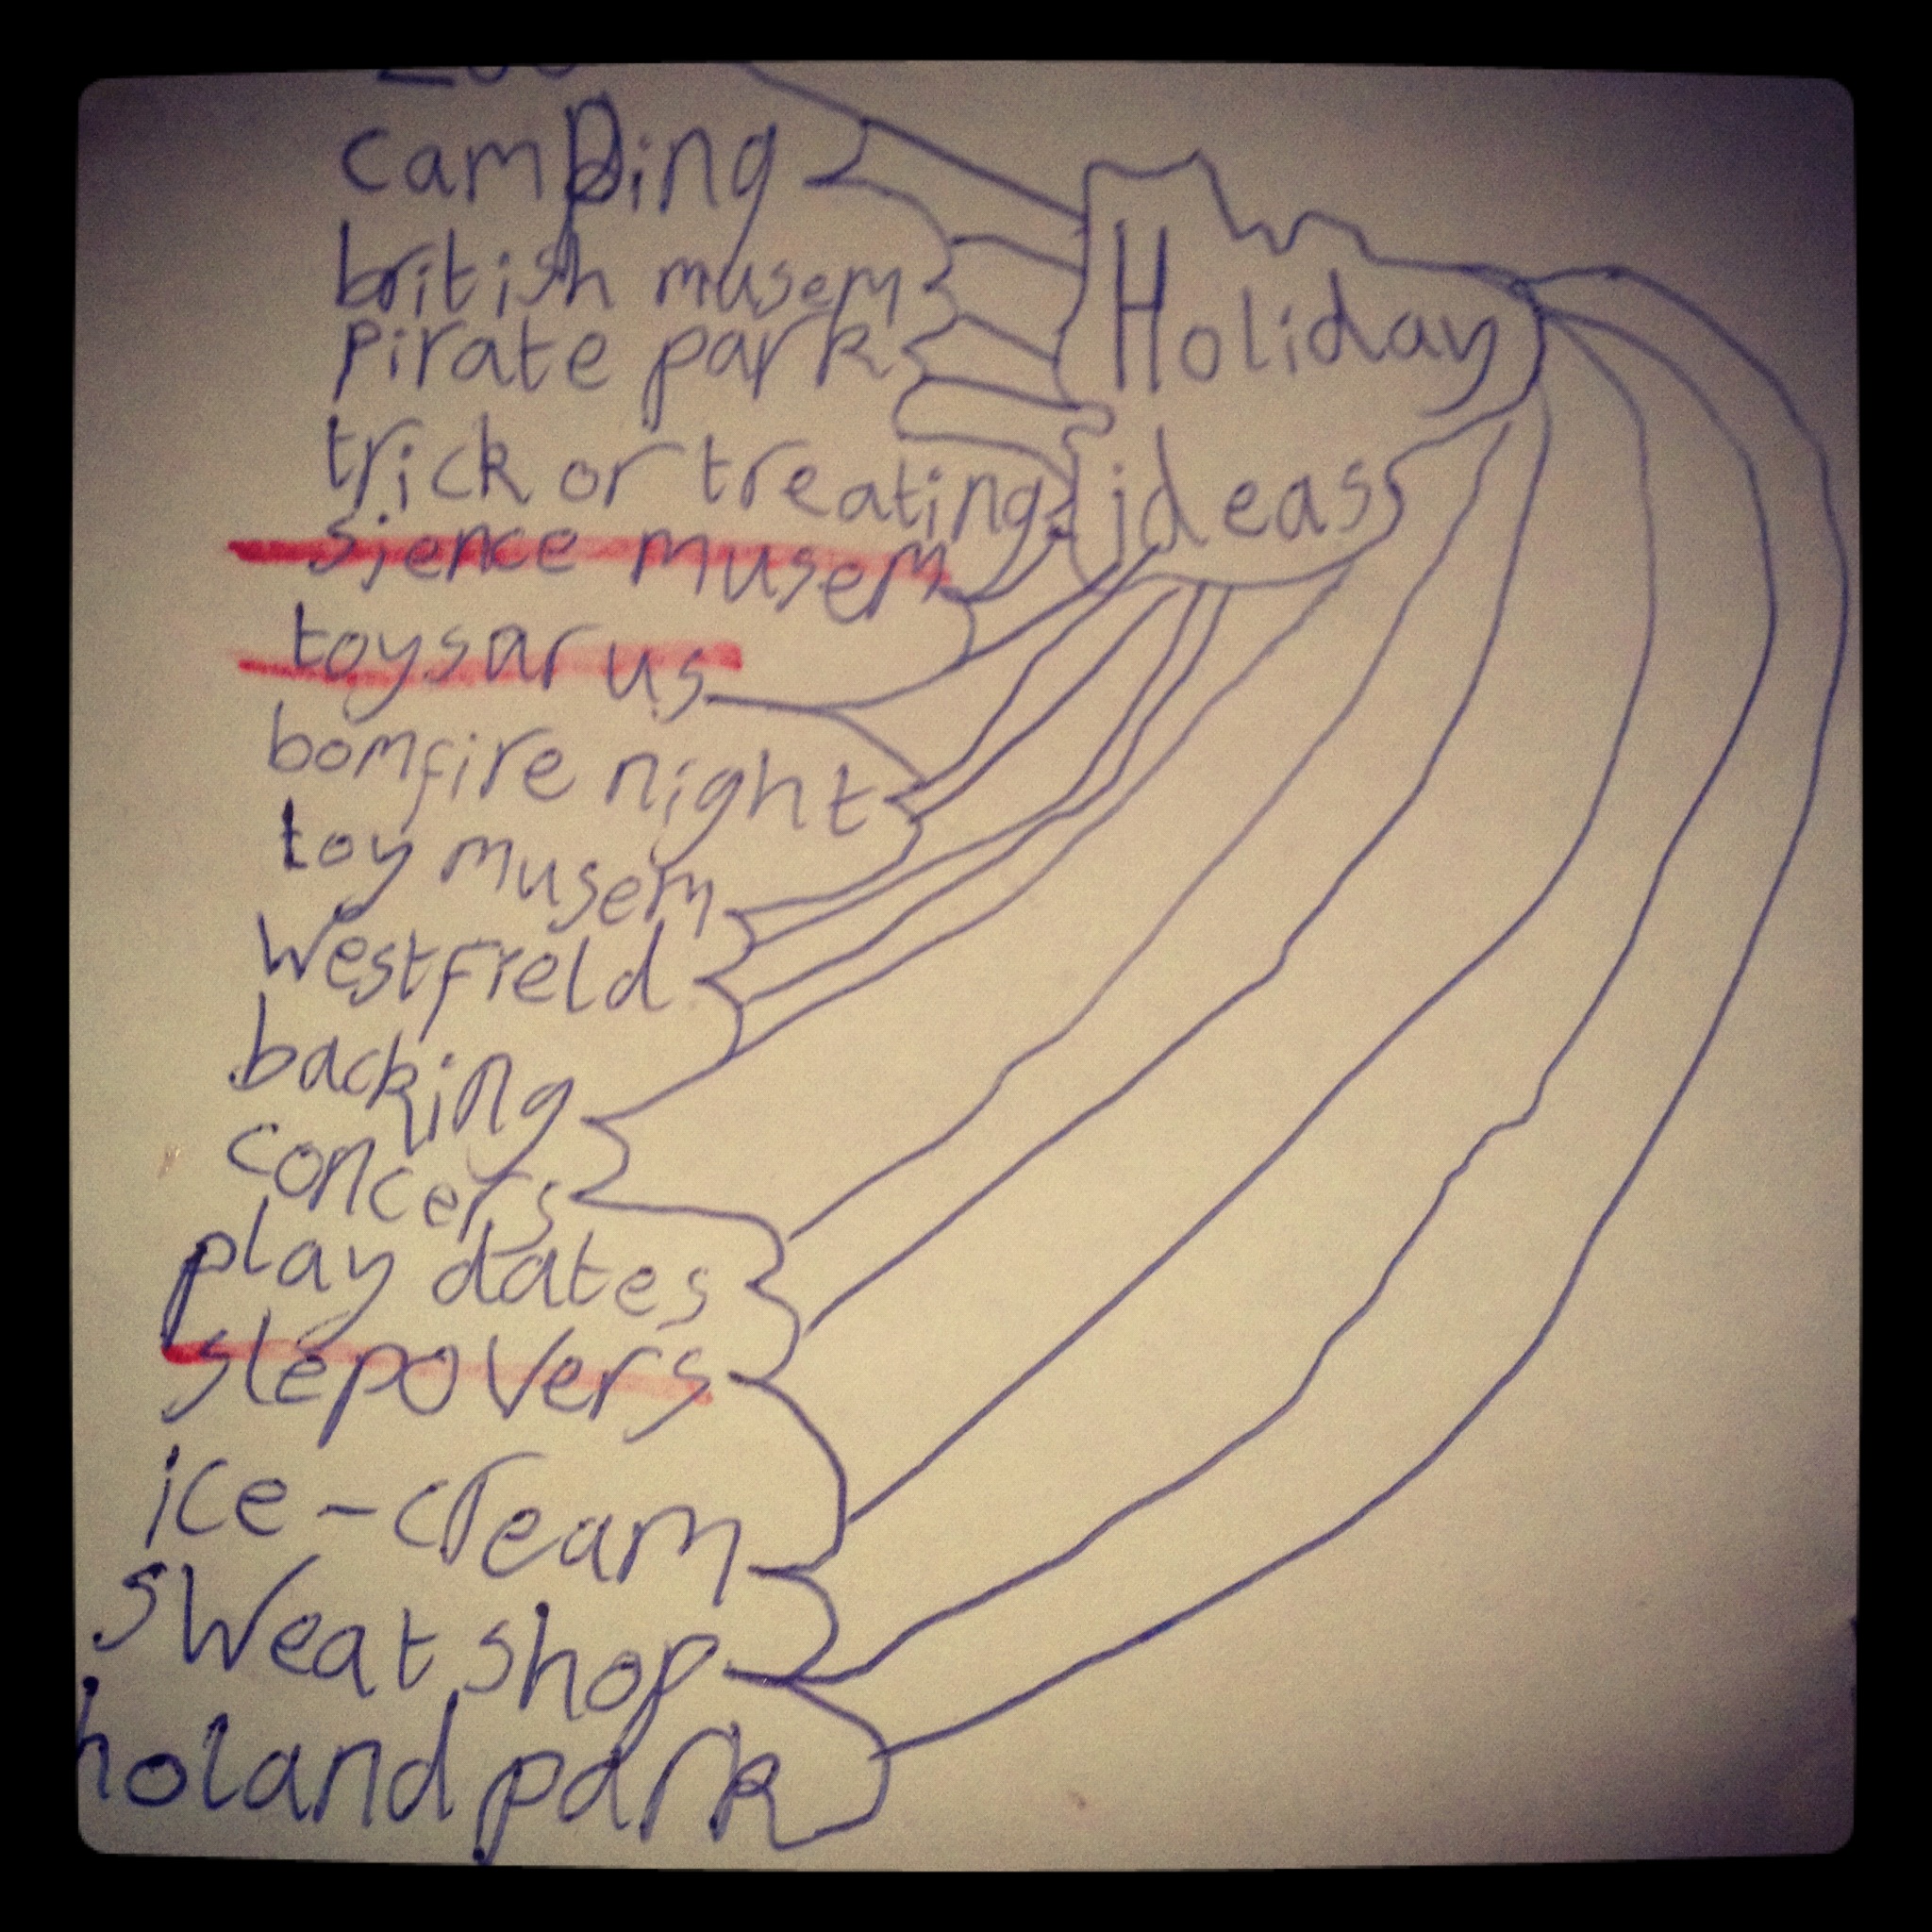 camping
british musem
pirate park
trick or treating
sience musem
toysarus
bomfire night
toy musem
Westfield
backing
concers
play dates
slepovers
ice-cream
sweat shop
holand park
Holiday
ideas